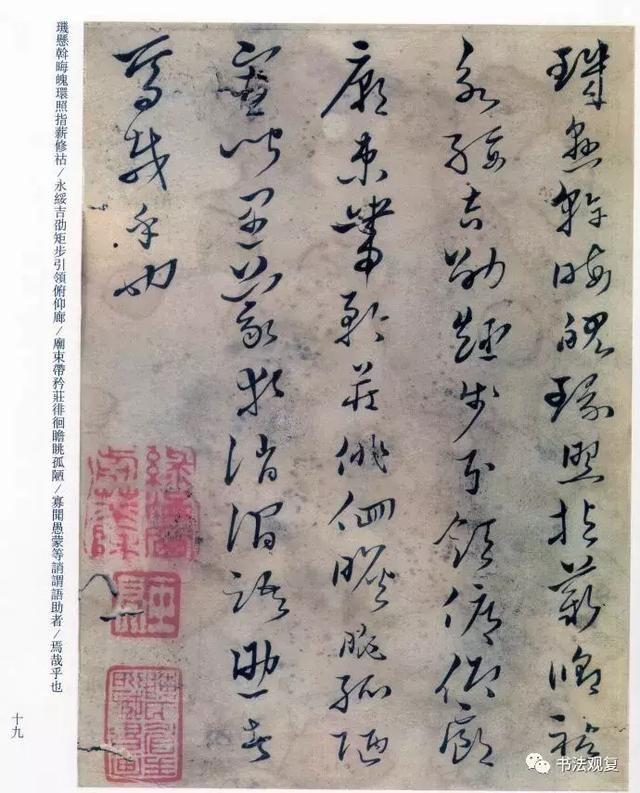 璣懸斡晦魄環照指薪修祜
永綏吉劭矩步引領俯仰廊
廟束帶矜莊徘徊瞻眺孤陋
寡聞愚蒙等誚謂語助者
焉哉乎也
璣懸斡晦魄環照指薪修祜/永綏吉劭矩步引領俯仰廊/廟束帶矜莊徘徊瞻眺孤陋/寡聞愚蒙等誚謂語助者/焉哉乎也
十九
书法观复